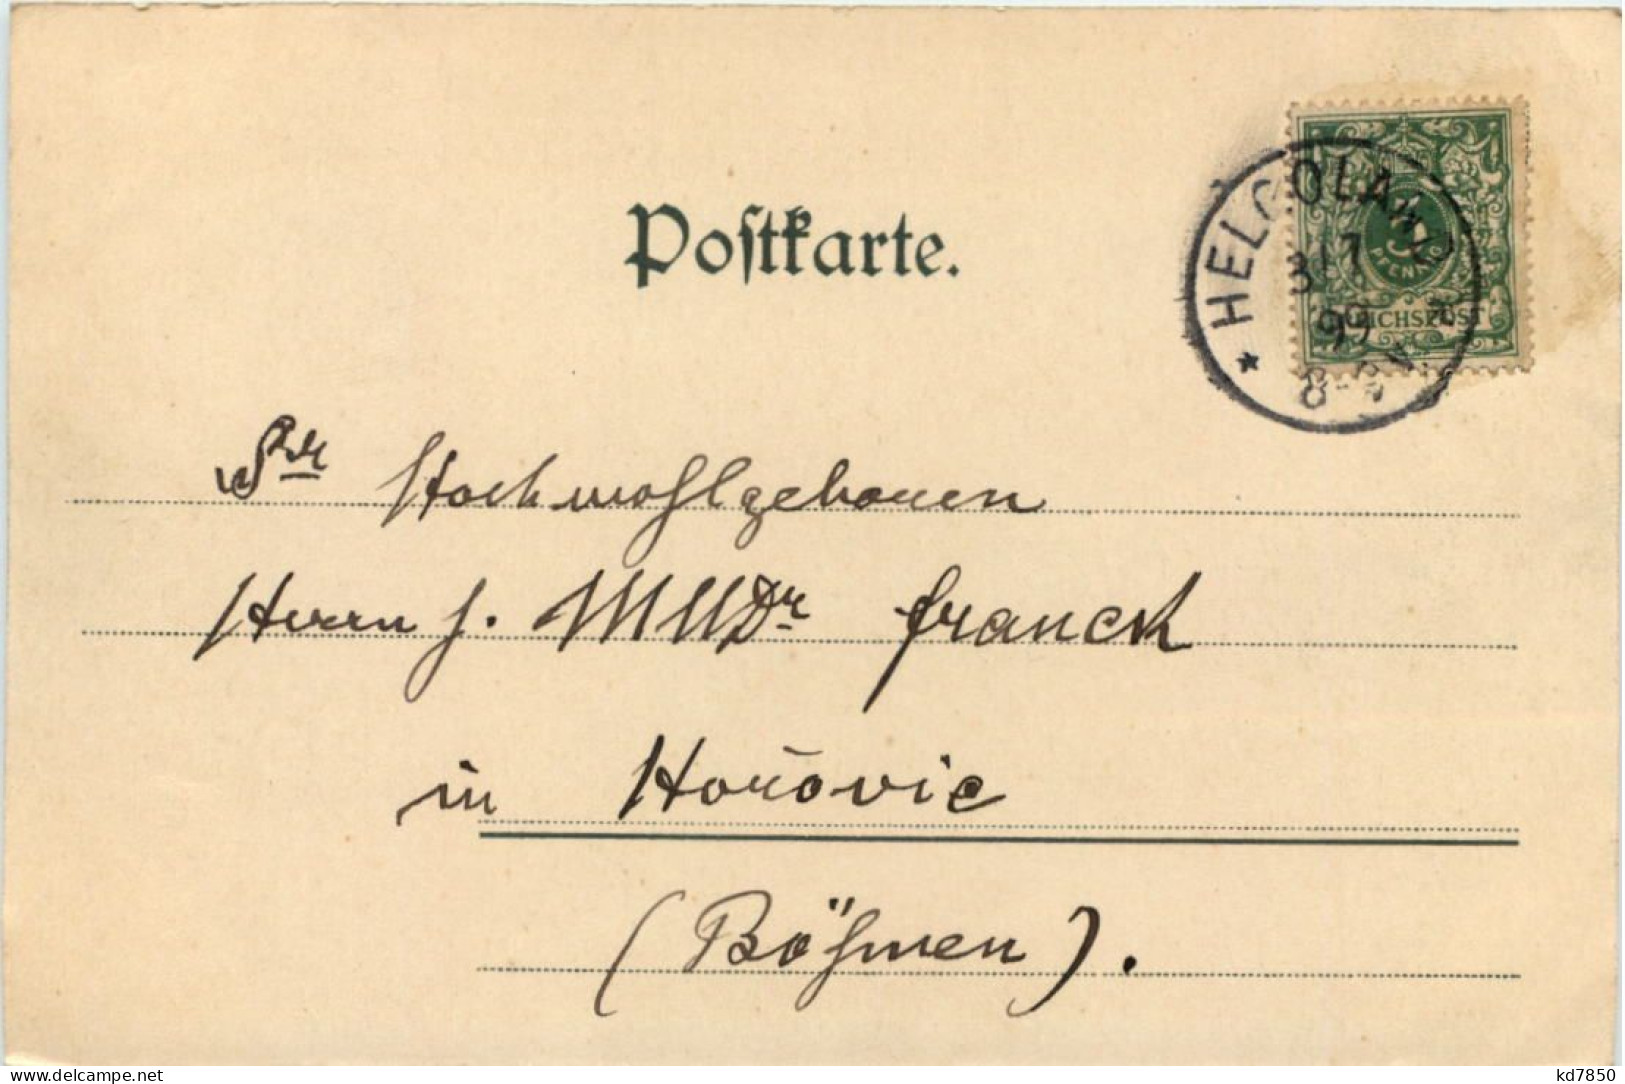 Postkarte.
* HELGOLAND *
3/7
99
8-9V.
5
PFENNIG
REICHSPOST
Sr Hochwohlgeboren
Herrn J. MUDr Franck
in Hořovic
(Böhmen).
www.delcampe.net
kd7850